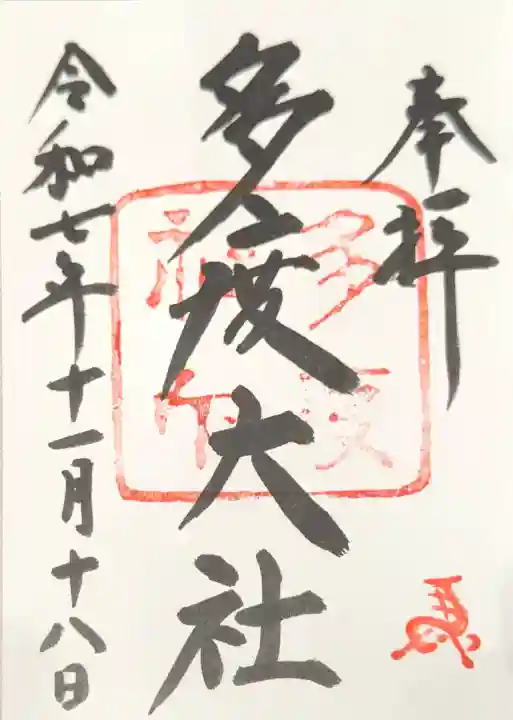 奉拝
多度大社
令和七年十一月十八日
多度